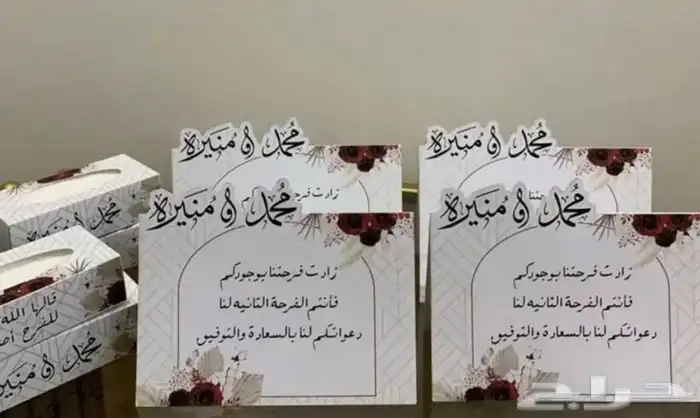 محمد و منيرة
زارت فرح
محمد و منيرة
محمد و منيرة
زارت فرحتنا بوجودكم
فأنتم الفرحة الثانيه لنا
دعواتكم لنا بالسعادة والتوفيق
محمد و منيرة
زارت فرحتنا بوجودكم
فأنتم الفرحة الثانيه لنا
دعواتكم لنا بالسعادة والتوفيق
قالها الله
للفرح
محمد و منيرة
حراج